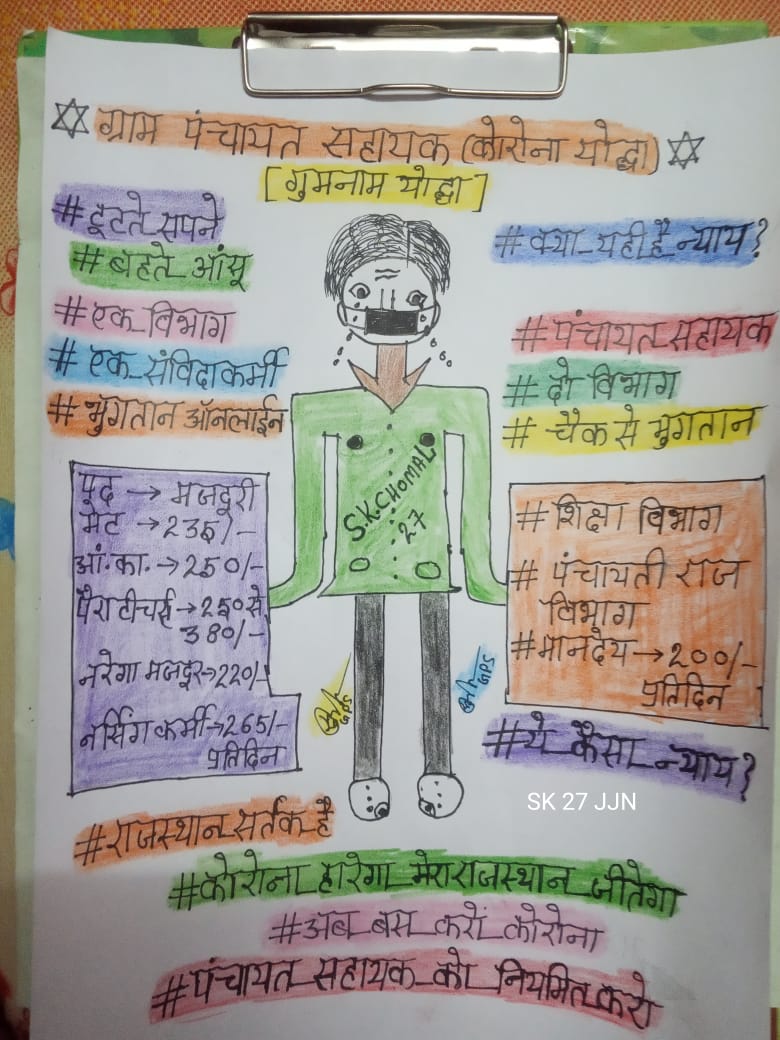 ग्राम पंचायत सहायक (कोरोना योद्धा)
[गुमनाम योद्धा]
#टूटते_सपने
#बहते_आंसू
#एक_विभाग
#एक_संविदाकर्मी
#भुगतान ऑनलाईन
#क्या_यही_है_न्याय?
#पंचायत_सहायक
#दो विभाग
#चैक से भुगतान
S.K.CHOMAL
27
पद → मजदूरी
मेट → 235/-
आं.का. → 250/-
पैराटीचर्स → 250 से
380/-
नरेगा मजदूर → 220/-
नर्सिंग कर्मी → 265/-
प्रतिदिन
#शिक्षा विभाग
#पंचायती राज
विभाग
#मानदेय → 200/-
प्रतिदिन
GPS
GPS
#ये_कैसा_न्याय?
SK 27 JJN
#राजस्थान_सर्तक_है
#कोरोना_हारेगा_मेरा राजस्थान_जीतेगा
#अब_बस_करों_कोरोना
#पंचायत_सहायक_को_नियमित_करो